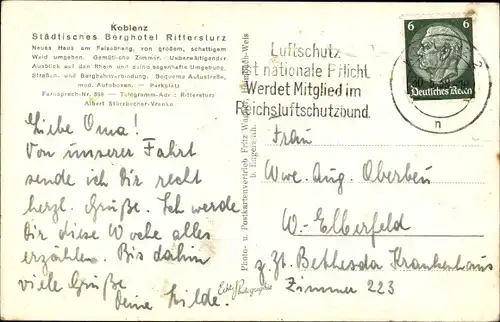 Koblenz
Städtisches Berghotel Rittersturz
Neues Haus am Felsabhang, von großem, schattigem
Wald umgeben. Gemütliche Zimmer. Überwältigender
Ausblick auf den Rhein und seine sagenhafte Umgebung.
Straßen- und Bergbahnverbindung. Bequeme Autostraße,
mod. Autoboxen. — Parkplatz
Fernsprech-Nr. — Telegramm-Adr.: Rittersturz
Albert
Luftschutz
ist nationale Pflicht
Werdet Mitglied im
Reichsluftschutzbund
6 6
Deutsches Reich
n
Liebe Oma!
Von unserer Fahrt
sende ich Dir recht
herzl. Grüße. Ich werde
Dir diese Woche alles
erzählen. Bis dahin
viele Grüße
Deine Hilde.
Photo- u. Postkartenvertrieb Fritz
b. Engers Rh.
Echte Photographie
Frau
Wwe. Aug. Oberbeu
W.-Elberfeld
z. Zt. Bethesda Krankenhaus
Zimmer 223